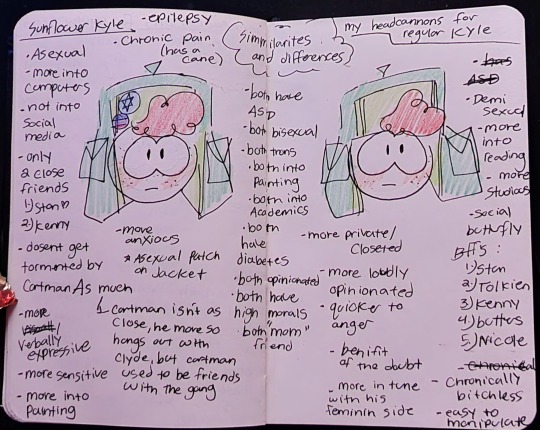 Sunflower Kyle
• Asexual
- more into
computers
- not into
Social
media
- only
2 close
friends
1) Stan ♡
2) Kenny
- dosent get
tormented by
Cartman As much
- more
verbally
expressive
- more sensitive
- more into
Painting
- epilepsy
- Chronic Pain
(has a
cane)
- more
anxious
* Asexual Patch
on Jacket
Cartman isn't as
Close, he more so
hangs out with
Clyde, but cartman
used to be friends
with the gang
Simmilarites
and differences
- both have
ASD
- both bisexual
- both trans
• both into
Painting
• both into
Academics
• both
have
diabetes
• both opinionated
• both have
high morals
• both "mom"
friend
my headcannons for
regular Kyle
- more private/
Closeted
- more loudly
opinionated
- quicker to
anger
- benifit
of the doubt
- more in tune
with his
feminin side
- has
ASD
- Demi
sexual
- more
into
reading
- more
Studious
- social
buttufly
Bffs:
1) Stan
2) Tolkien
3) Kenny
4) butters
5) Nicole
- Chronical
- Chronically
bitchless
- easy to
manipulate